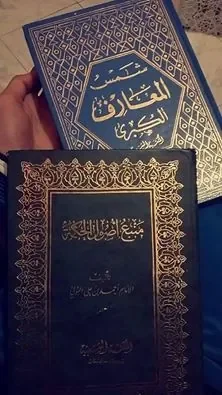 شمس
المعارف
الكبرى
منبع أصول الحكمة
تأليف
الإمام أحمد بن علي البوني